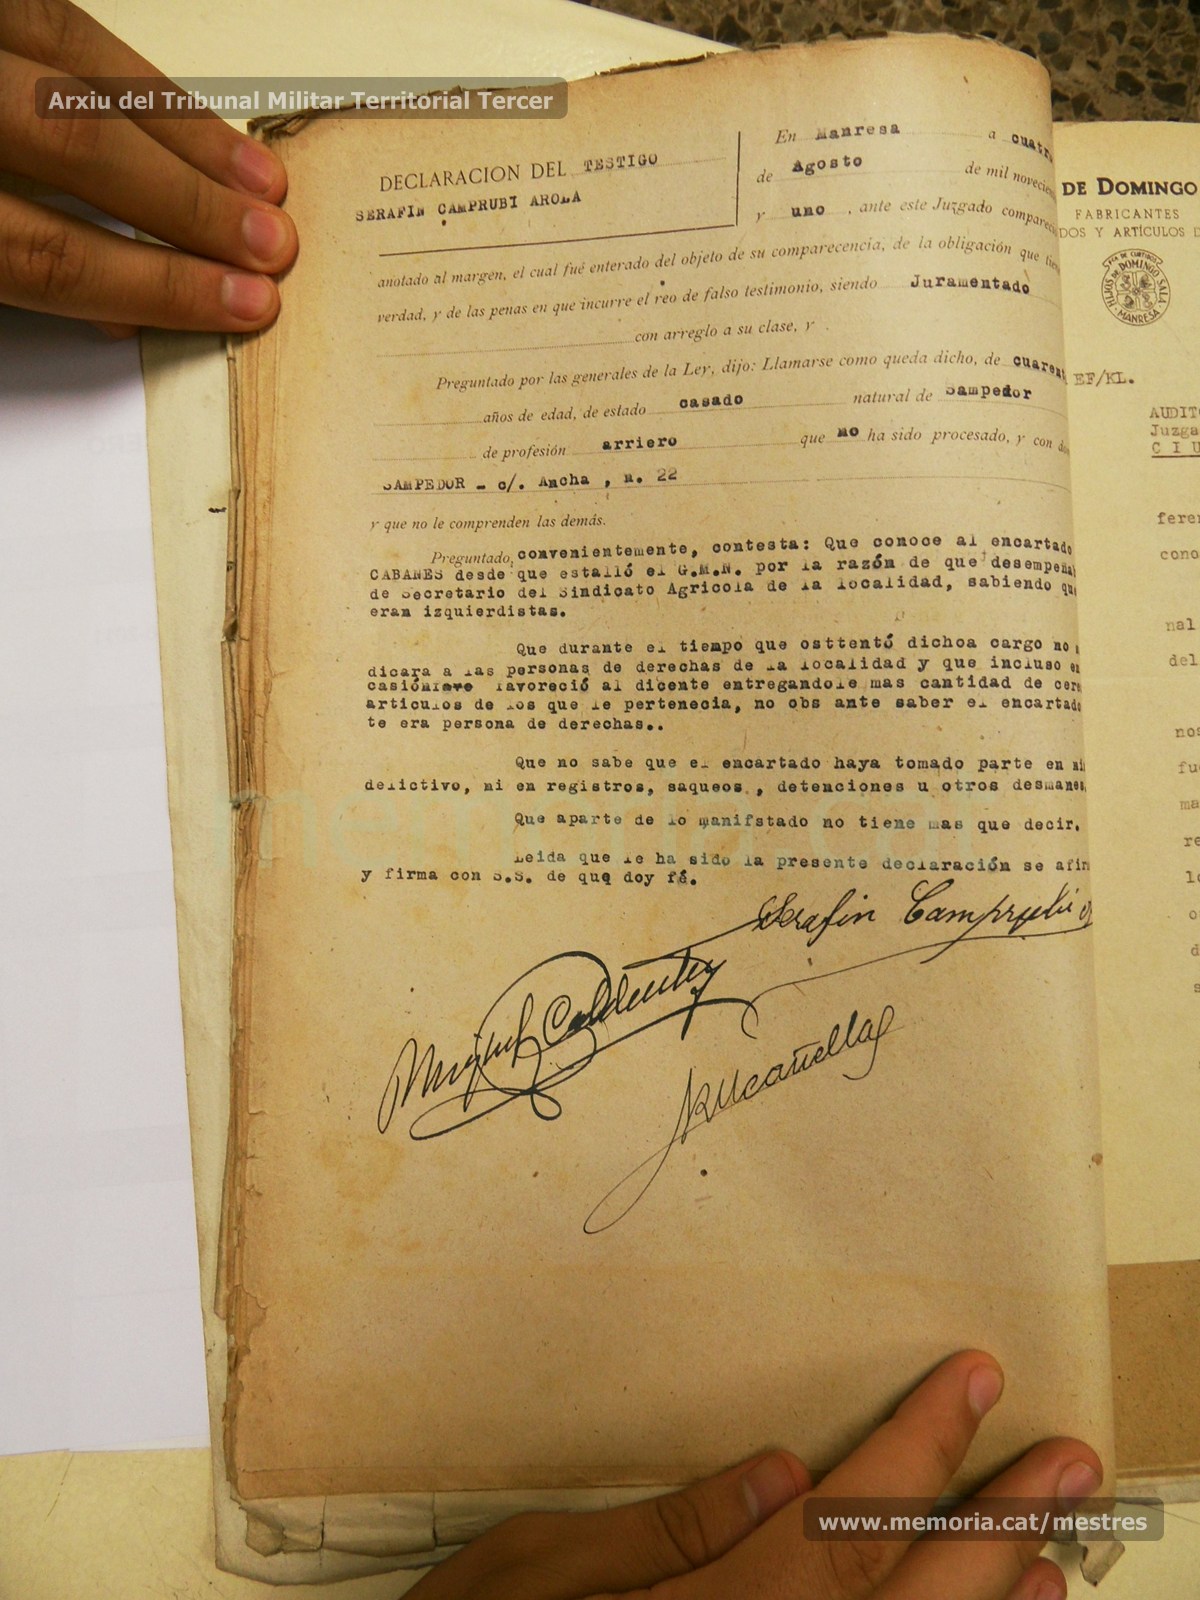 Arxiu del Tribunal Militar Territorial Tercer
DECLARACION DEL TESTIGO
SERAFIN CAMPRUBI AROLA
En Manresa a cuatr
de Agosto de mil novecien
y uno , ante este Juzgado comparec
anotado al margen, el cual fué enterado del objeto de su comparecencia, de la obligación que tien
verdad, y de las penas en que incurre el reo de falso testimonio, siendo Juramentado
con arreglo a su clase, y
Preguntado por las generales de la Ley, dijo: Llamarse como queda dicho, de cuarent
años de edad, de estado casado natural de Sampedor
de profesión arriero que no ha sido procesado, y con do
SAMPEDOR - c/. Ancha , n. 22
y que no le comprenden las demás.
Preguntado, convenientemente, contesta: Que conoce al encartado
CABANES desde que estalló el G.M.N. por la razón de que desempeña
de Secretario del Sindicato Agricola de la localidad, sabiendo que
eran izquierdistas.
Que durante el tiempo que osttentó dichoa cargo no
dicara a las personas de derechas de la localidad y que incluso en
casión favoreció al dicente entregandole mas cantidad de
articulos de los que le pertenecia, no obs ante saber el encartado
te era persona de derechas..
Que no sabe que el encartado haya tomado parte en
delictivo, ni en registros, saqueos , detenciones u otros desmanes
Que aparte de lo manifstado no tiene mas que decir.
Leida que le ha sido la presente declaración se afir
y firma con S.S. de que doy fé.
Serafin Camprubi
Miguel Caldentey
DE DOMINGO
FABRICANTES
DOS Y ARTÍCULOS D
HIJOS DE DOMINGO SALA
MANRESA
EF/KL.
AUDIT
Juzga
C I U
feren
cono
nal
del
nos
fu
ma
re
lo
o
d
s
www.memoria.cat/mestres